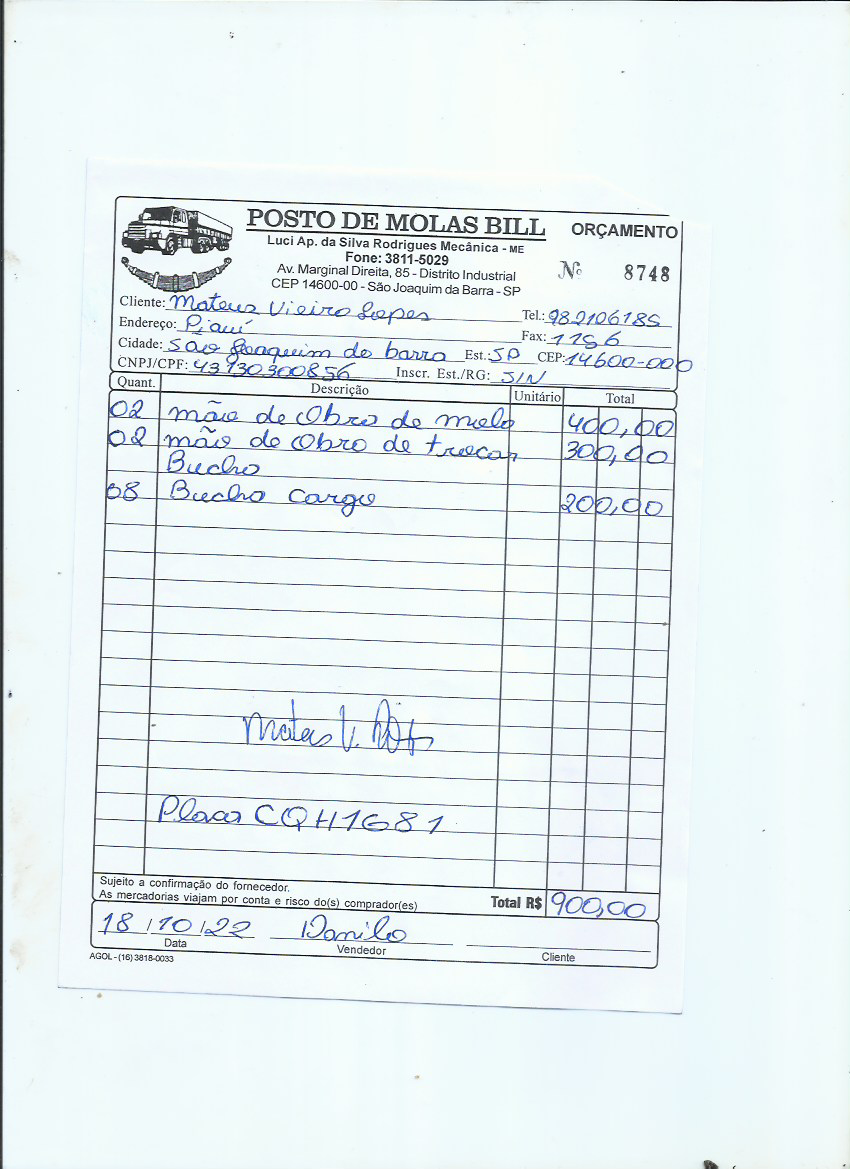 POSTO DE MOLAS BILL
ORÇAMENTO
Luci Ap. da Silva Rodrigues Mecânica - ME
Fone: 3811-5029
Nº 8748
Av. Marginal Direita, 85 - Distrito Industrial
CEP 14600-00 - São Joaquim da Barra - SP
Cliente: Mateus Vieira Lopes Tel.: 982106185
Endereço: Piauí Fax: 1156
Cidade: São Joaquim da barra Est.: SP CEP: 14600-000
CNPJ/CPF: 43730300856 Inscr. Est./RG: S/N
Quant. Descrição Unitário Total
02 mão de Obra de mola 400,00
02 mão de Obra de trocar 300,00
Bucha
08 Bucha cargo 200,00
Mateus V.
Placa CQH1681
Sujeito a confirmação do fornecedor.
As mercadorias viajam por conta e risco do(s) comprador(es)
Total R$ 900,00
18 / 10 / 22 Danilo
Data Vendedor Cliente
AGOL - (16) 3818-0033